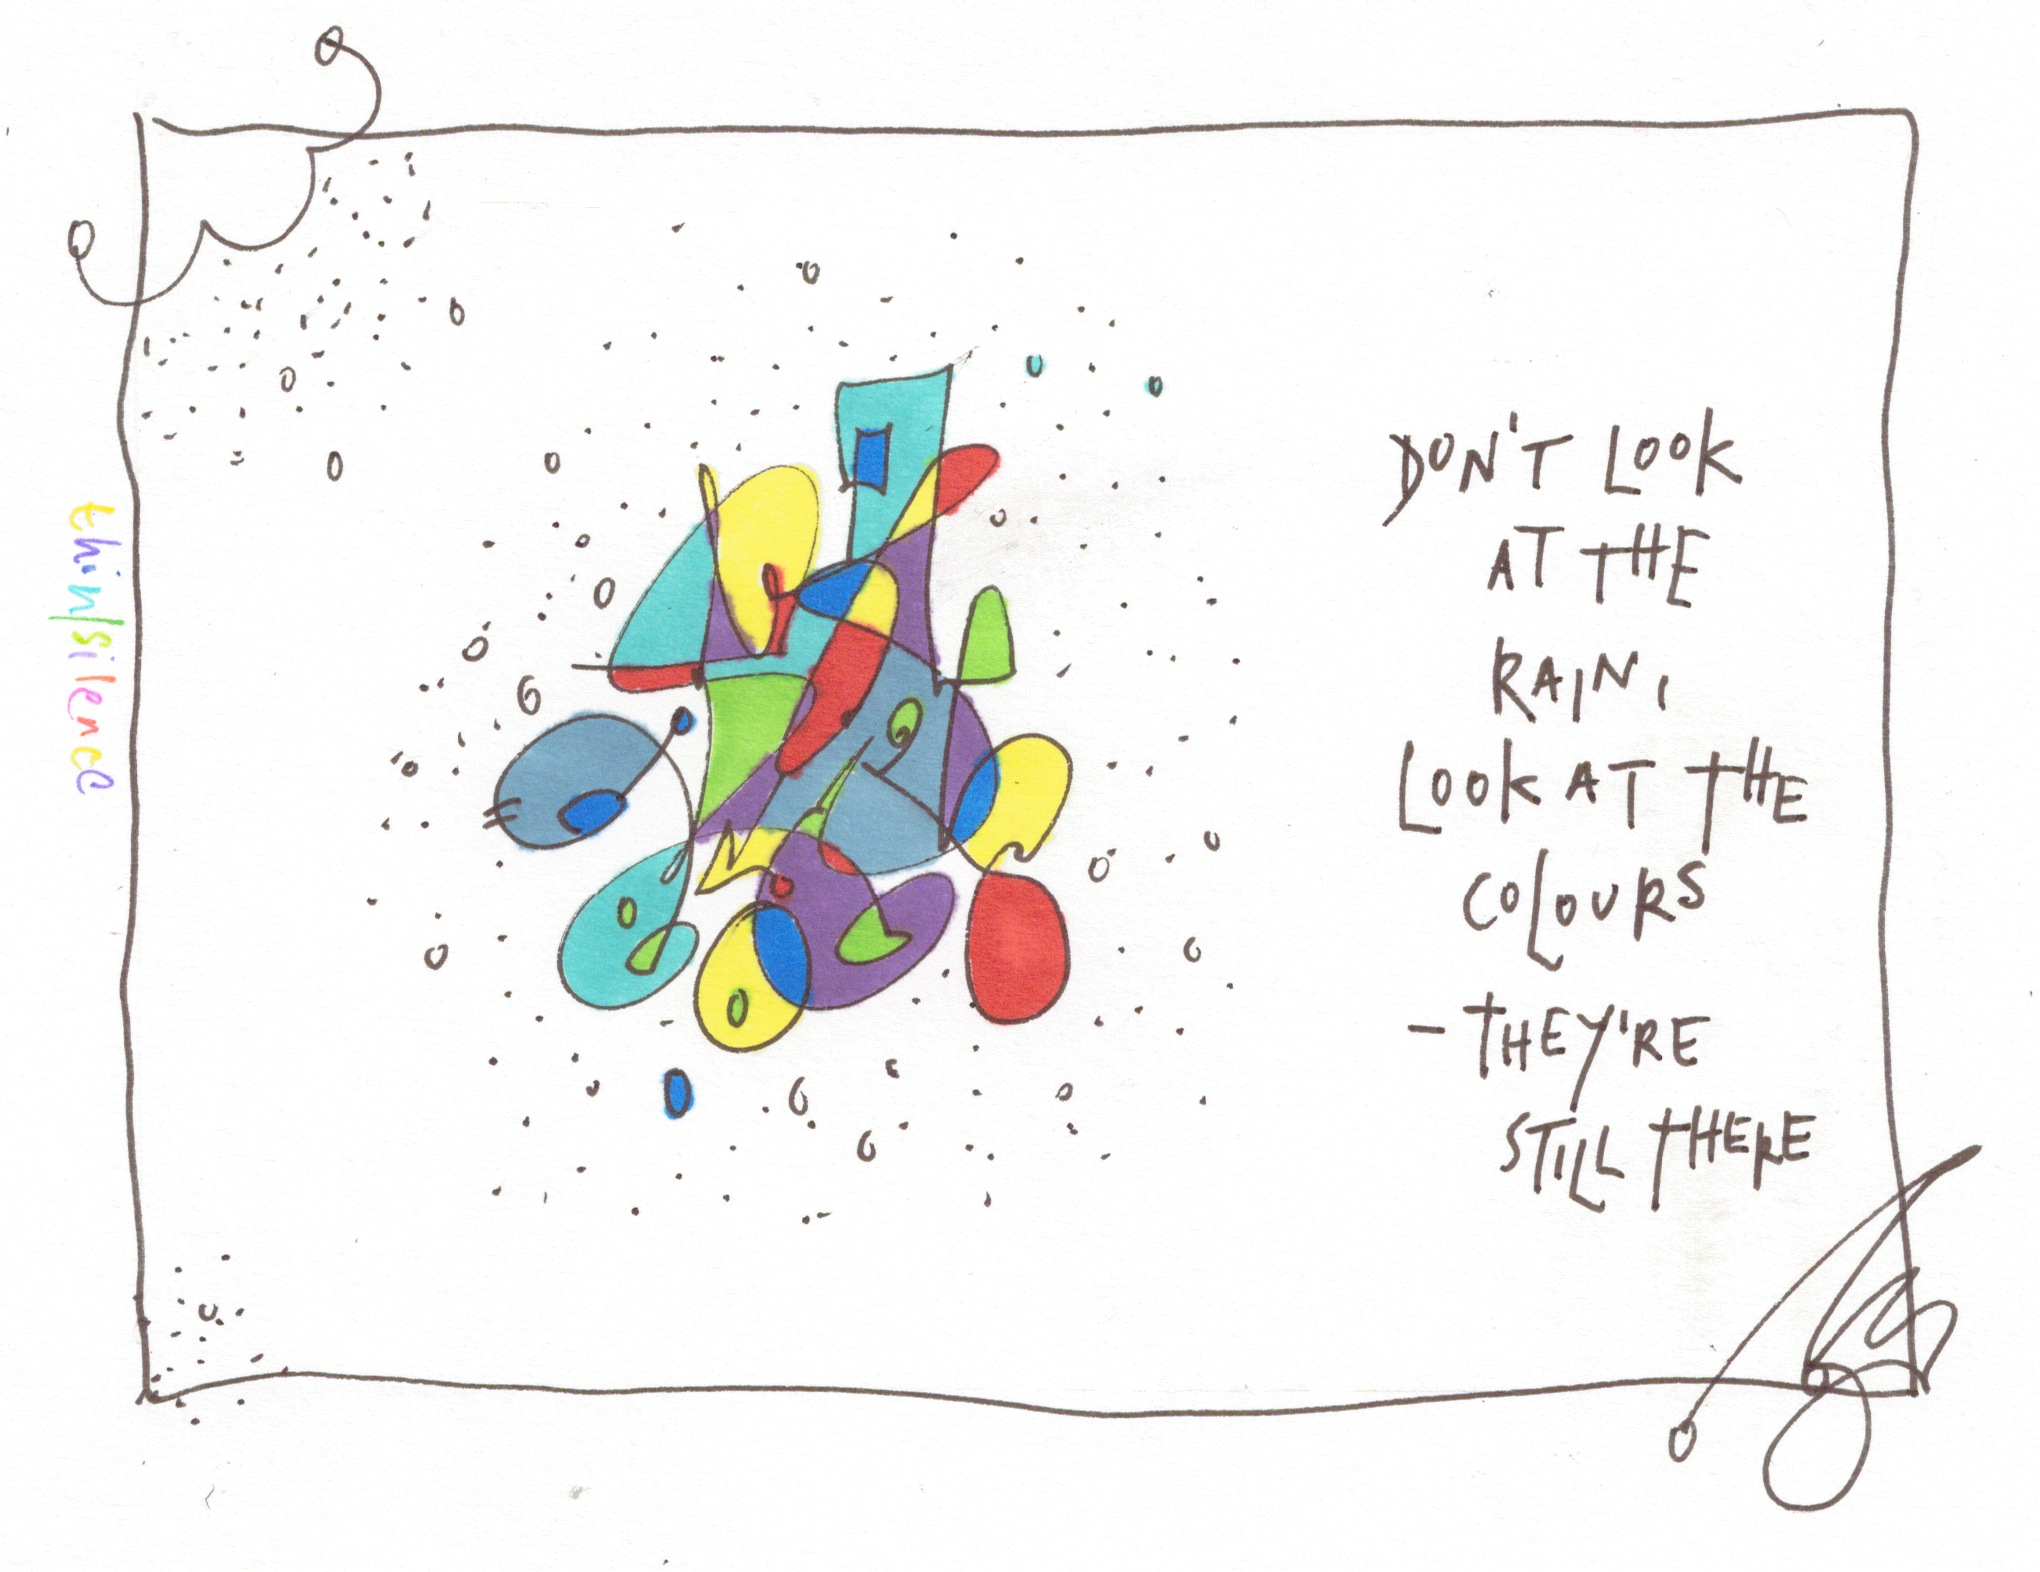 DON'T LOOK
AT THE
RAIN,
LOOK AT THE
COLOURS
- THEY'RE
STILL THERE
thin/silence